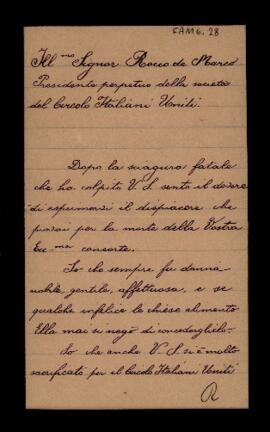 FAM6.28
Ill.mo Signor Rocco de Marco
Presidente perpetuo della società
del Circolo Italiani Uniti.
Dopo la sciagura fatale
che ha colpito V. S. sento il dovere
di esprimervi il dispiacere che
provai per la morte della Vostra
Ecc.ma consorte.
So che sempre fu donna
nobile, gentile, affettuosa, e se
qualche infelice le chiese alimento
Ella mai si negò di concedeglielo.
So che anche V. S. si è molto
sacrificato per il Circolo Italiani Uniti